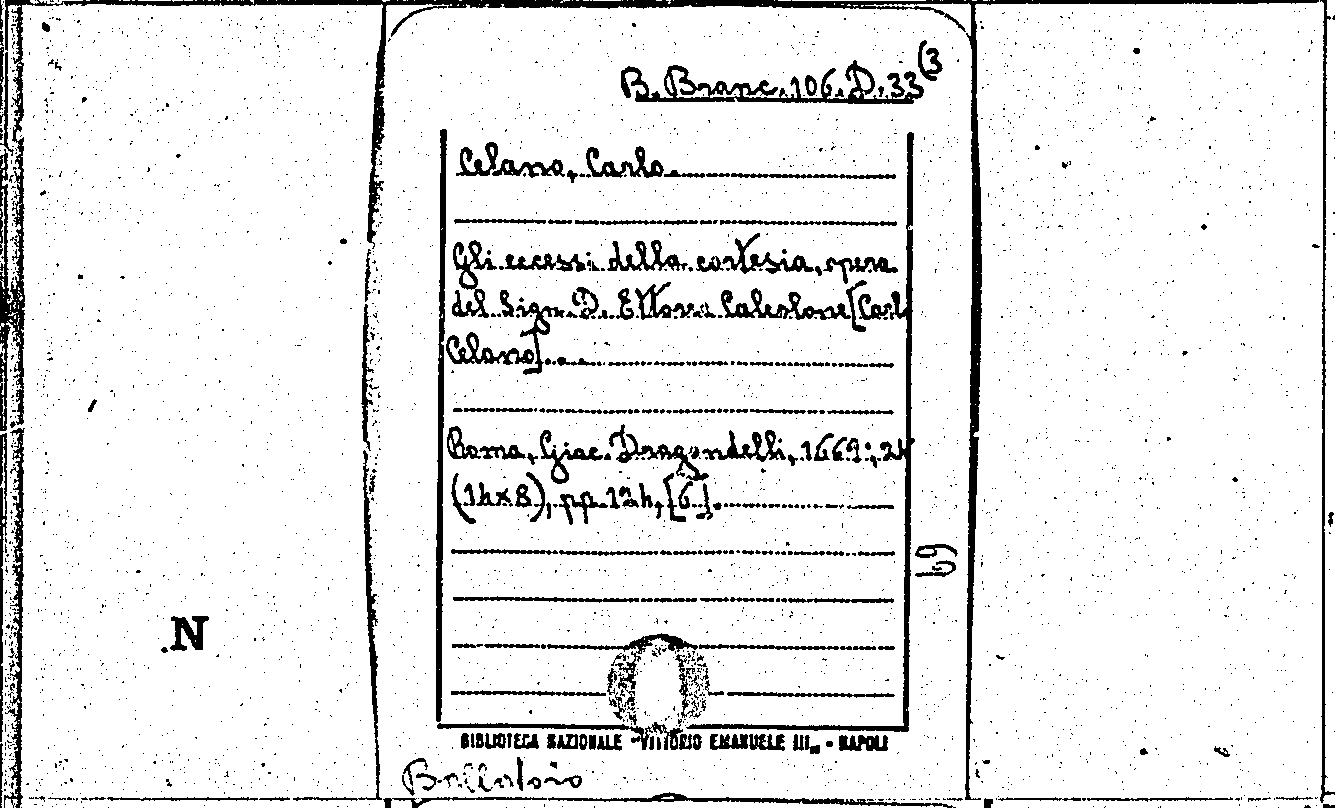 B. Branc. 106. D. 33(3
Celano, Carlo.
Gli eccessi della cortesia, opera
del Sign. D. Ettore Calcolone [Carlo
Celano]....
Roma, Giac. Dragondelli, 1669; 24
(14x8), pp. 124, [6].
69
N
BIBLIOTECA NAZIONALE "VITTORIO EMANUELE III„ - NAPOLI
Ballatoio